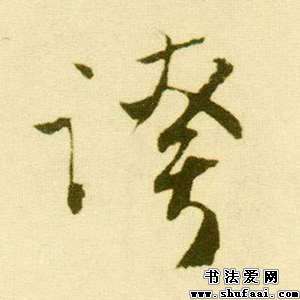 誇
书法爱网
www.shufaai.com